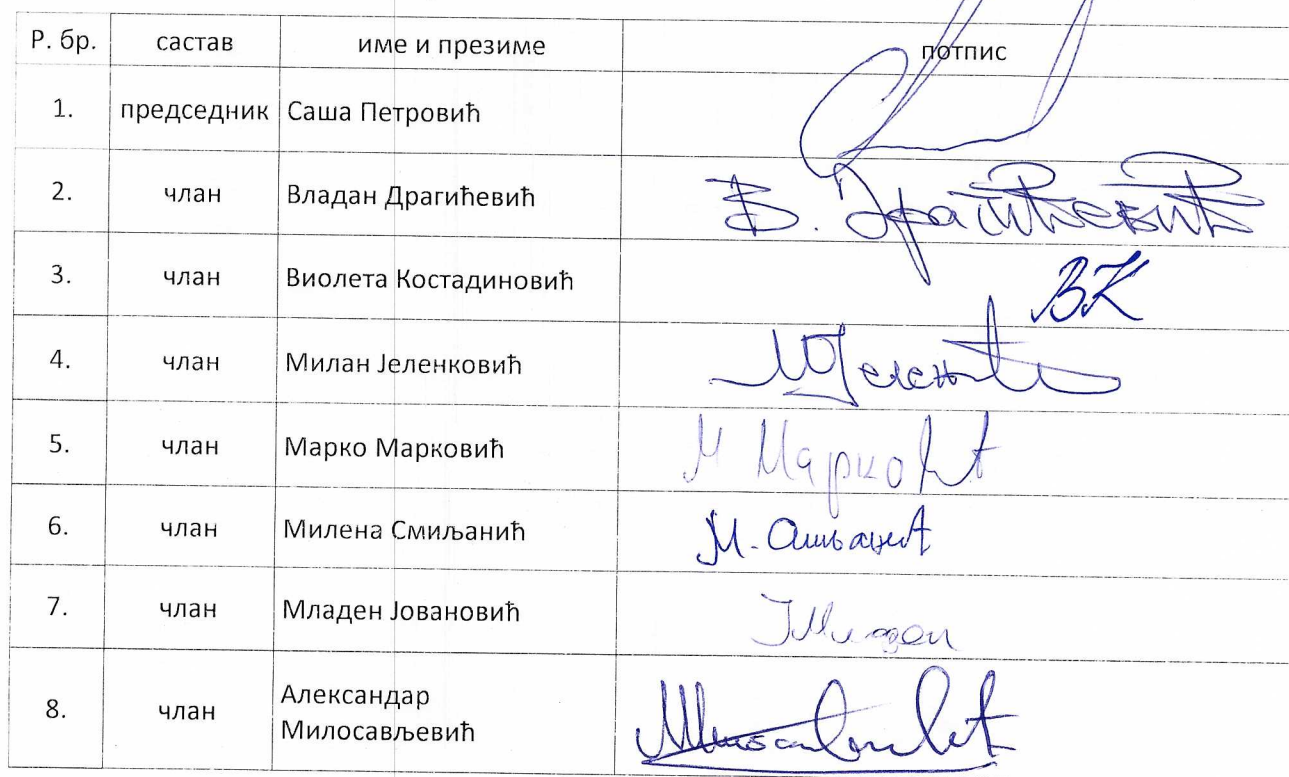 Р. бр. састав име и презиме потпис
1. председник Саша Петровић
2. члан Владан Драгићевић В. Драгићевић
3. члан Виолета Костадиновић ВК
4. члан Милан Јеленковић
5. члан Марко Марковић М Марковић
6. члан Милена Смиљанић М. Смиљанић
7. члан Младен Јовановић ЈМладен
8. члан Александар
Милосављевић